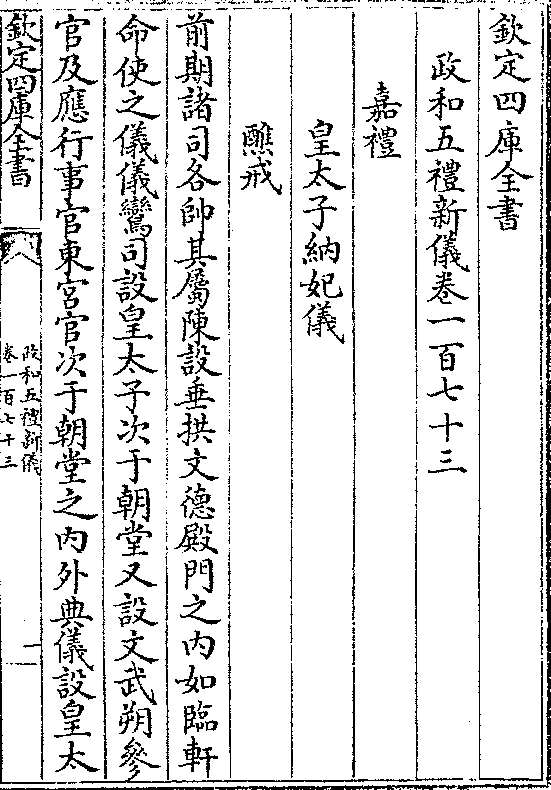 欽定四庫全書
政和五禮新儀卷一百七十三
嘉禮
皇太子納妃儀
醮戒
前期諸司各帥其屬陳設垂拱文德殿門之内如臨軒
命使之儀儀鸞司設皇太子次于朝堂又設文武朔參
官及應行事官東宮官次于朝堂之内外典儀設皇太
欽定四庫全書
政和五禮新儀
卷一百七十三
一